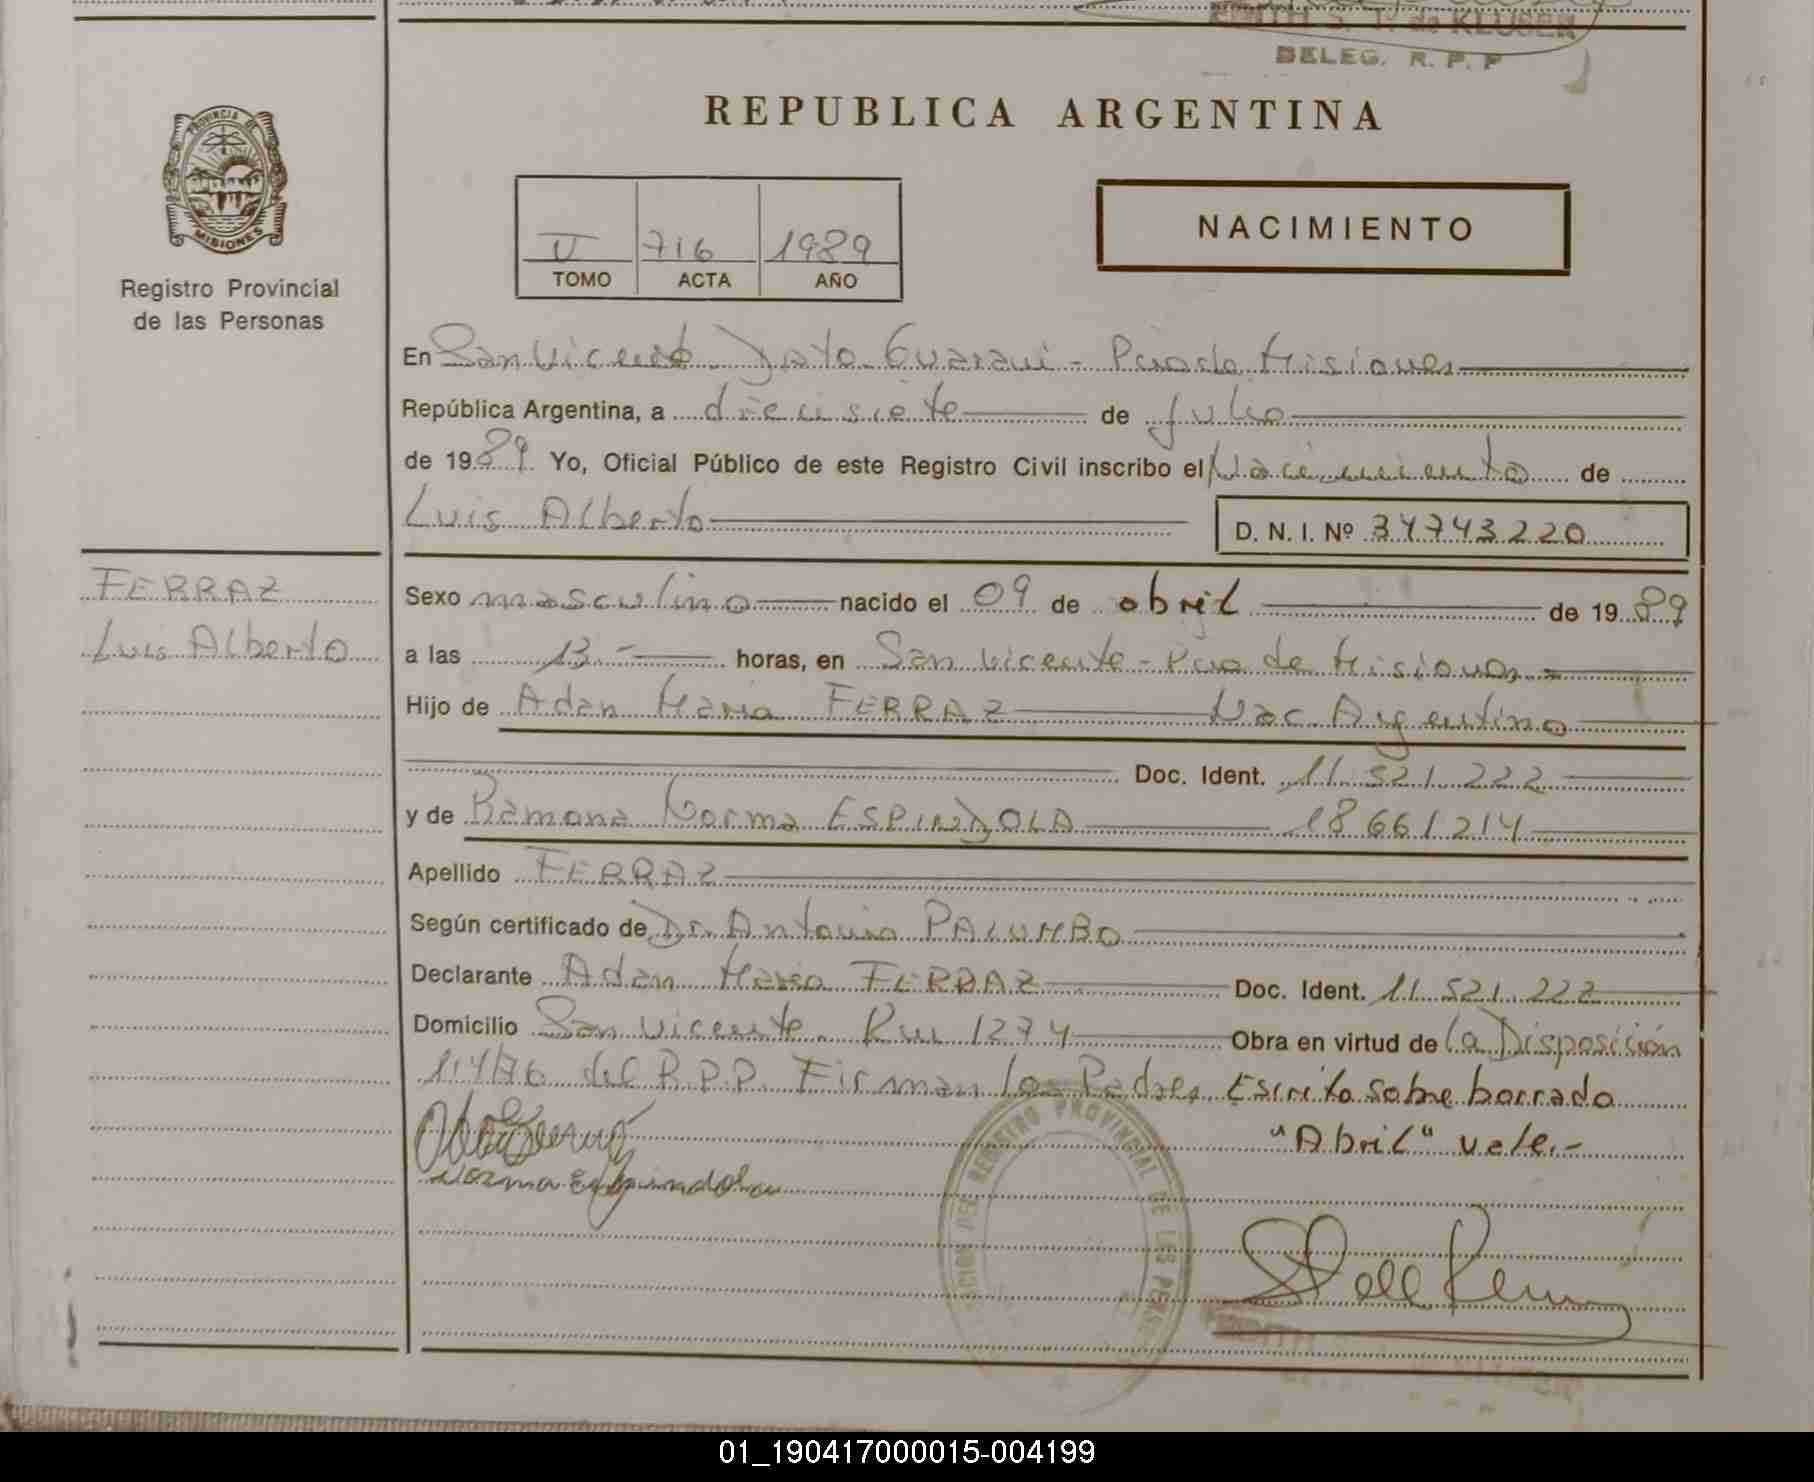 DELEG. R. P. P
REPUBLICA ARGENTINA
PROVINCIA DE
MISIONES
Registro Provincial
de las Personas
V 716 1989
TOMO ACTA AÑO
NACIMIENTO
En San Vicente Dpto. Guarani - Pcia de Misiones
República Argentina, a diecisiete de Julio
de 1989. Yo, Oficial Público de este Registro Civil inscribo el Nacimiento de
Luis Alberto
D. N. I. Nº 34743220
FERRAZ
Luis Alberto
Sexo masculino nacido el 09 de abril de 1989
a las 13.- horas, en San Vicente - Pcia de Misiones -
Hijo de Adan Maria FERRAZ Nac Argentino
Doc. Ident. 11.521.222
y de Ramona Norma ESPINDOLA 18661214
Apellido FERRAZ
Según certificado de Dr. Antonio PALUMBO
Declarante Adan Maria FERRAZ Doc. Ident. 11.521.222
Domicilio San Vicente. Ruta 1274 Obra en virtud de la Disposición
114/76 del R.P.P. Firman los Padres. Escrito sobre borrado
"Abril" vale.-
Norma Espindola
REGISTRO PROVINCIAL DE LAS PERSONAS
01_190417000015-004199